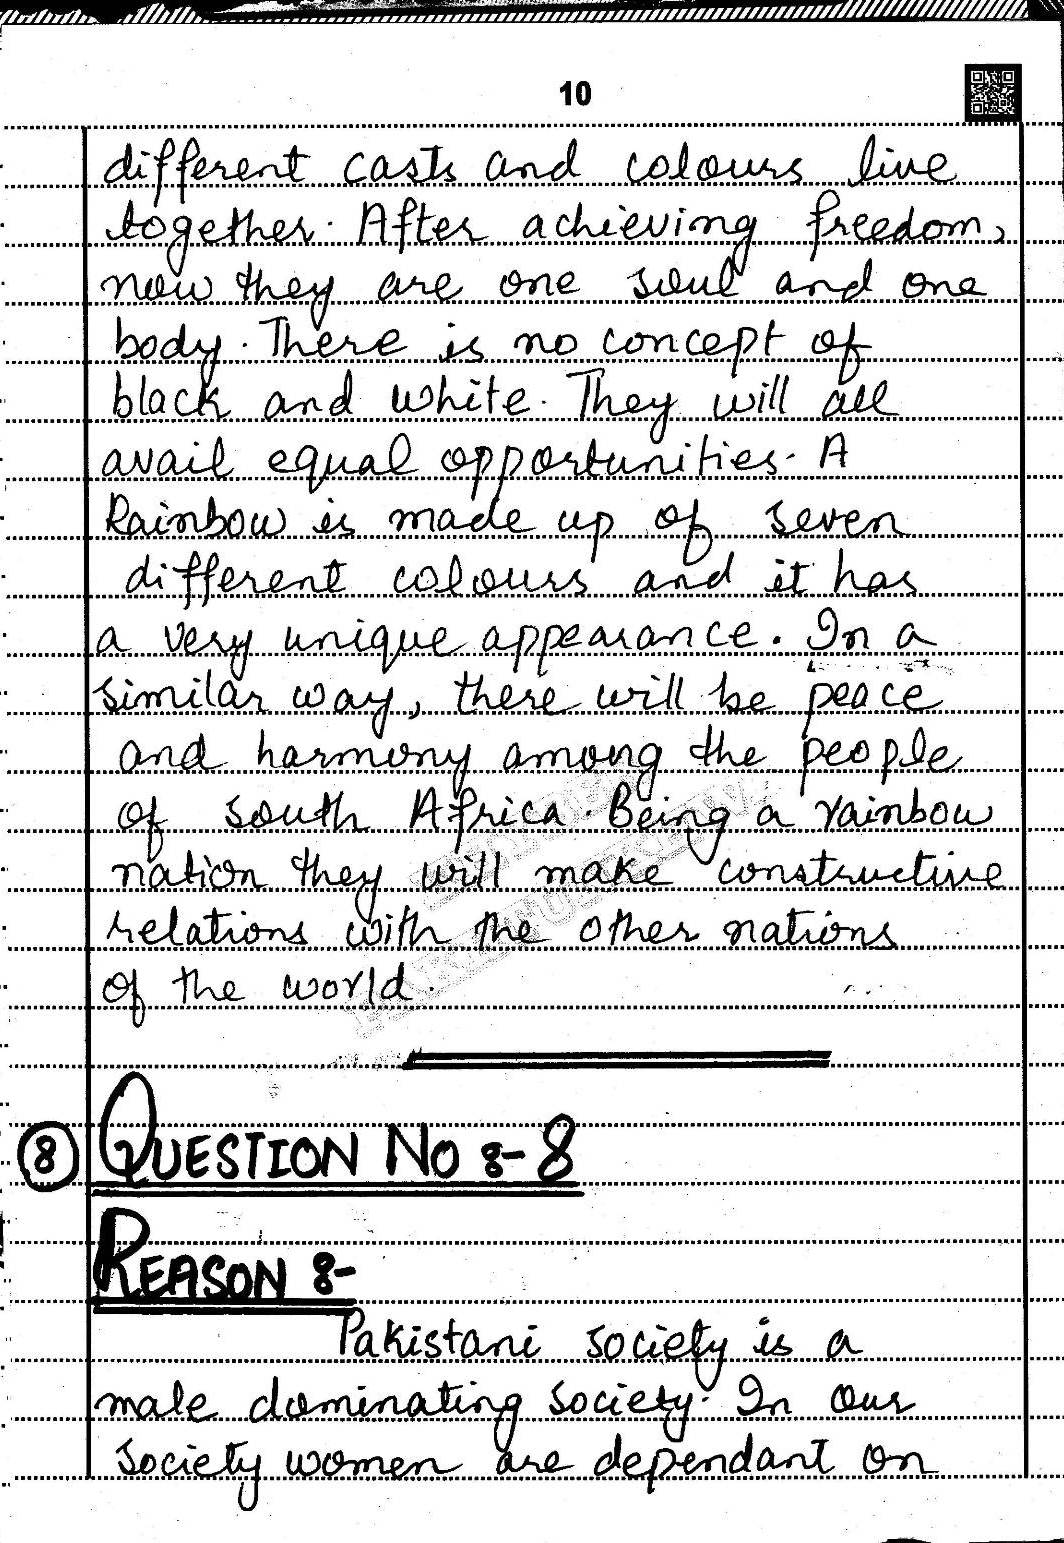 10
different casts and colours live
together. After achieving freedom,
now they are one soul and one
body. There is no concept of
black and white. They will all
avail equal opportunities. A
Rainbow is made up of seven
different colours and it has
a very unique appearance. In a
similar way, there will be peace
and harmony among the people
of south Africa. Being a rainbow
nation they will make constructive
relations with the other nations
of the world.
8 QUESTION NO :- 8
REASON :-
Pakistani society is a
male dominating society. In our
society women are dependant on